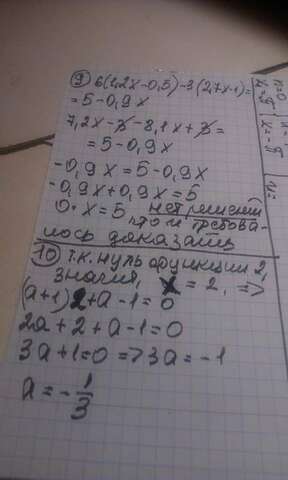 ⑨ 6(1,2x-0,5)-3(2,7x-1)=
=5-0,9x
7,2x-3-8,1x+3=
=5-0,9x
-0,9x=5-0,9x
-0,9x+0,9x=5
0·x=5 нет решений
что и требова-
лось доказать
⑩ т.к. нуль функции 2,
значит, x=2, =>
(a+1)2+a-1=0
2a+2+a-1=0
3a+1=0=>3a=-1
a=-1/3